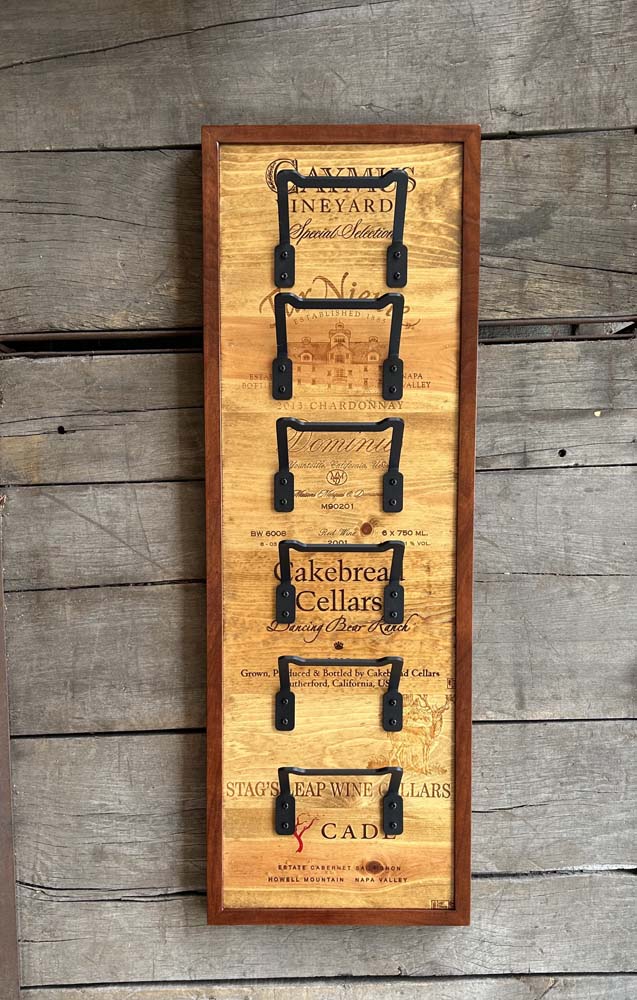 CAYMUS
VINEYARD
Special Selection
Far Niente
ESTABLISHED 1885
NAPA
VALLEY
2013 CHARDONNAY
Dominus
Yountville, California, USA
M90201
BW 6008 Red Wine 6 X 750 ML.
2001 % VOL.
Cakebread
Cellars
Dancing Bear Ranch
Grown, Produced & Bottled by Cakebread Cellars
Rutherford, California, USA
STAG'S LEAP WINE CELLARS
CADE
ESTATE CABERNET SAUVIGNON
HOWELL MOUNTAIN NAPA VALLEY